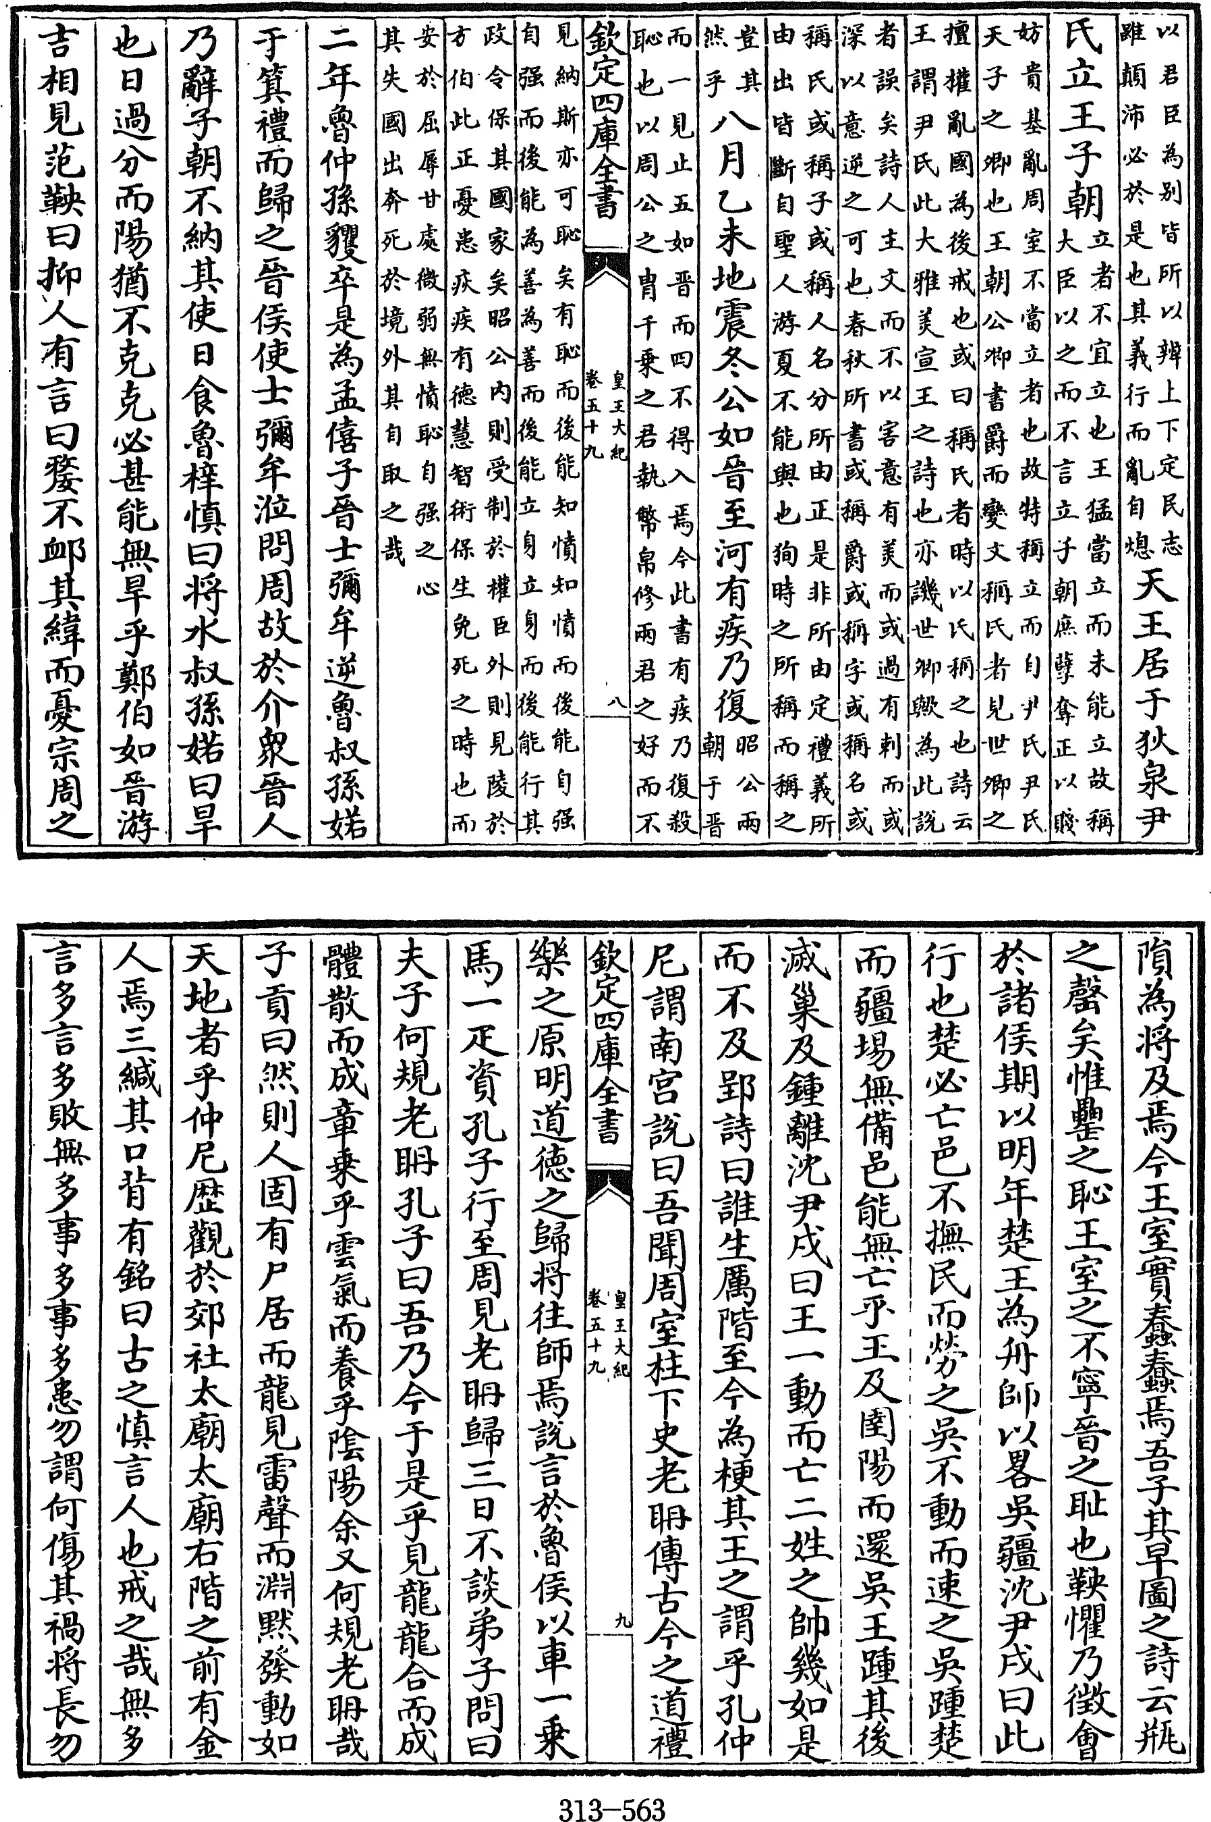 以君臣為别皆所以辨上下定民志
雖顛沛必於是也其義行而亂自熄
天王居于狄泉尹
氏立王子朝
立者不宜立也王猛當立而未能立故稱
大臣以之而不言立子朝庶孽奪正以賤
妨貴基亂周室不當立者也故特稱立而自尹氏尹氏
天子之卿也王朝公卿書爵而變文稱氏者見世卿之
擅權亂國為後戒也或曰稱氏者時以氏稱之也詩云
王謂尹氏此大雅美宣王之詩也亦譏世卿歟為此說
者誤矣詩人主文而不以害意有美而或過有刺而或
深以意逆之可也春秋所書或稱爵或稱字或稱名或
稱氏或稱子或稱人名分所由正是非所由定禮義所
由出皆斷自聖人游夏不能與也狥時之所稱而稱之
豈其
然乎
八月乙未地震冬公如晉至河有疾乃復
昭公兩
朝于晉
而一見止五如晉而四不得入焉今此書有疾乃復殺
恥也以周公之胄千乘之君執幣帛修兩君之好而不
欽定四庫全書
皇王大紀
卷五十九
八
見納斯亦可恥矣有恥而後能知憤知憤而後能自强
自强而後能為善為善而後能立身立身而後能行其
政令保其國家矣昭公内則受制於權臣外則見陵於
方伯此正憂患疢疾有德慧智術保生免死之時也而
安於屈辱甘處微弱無憤恥自强之心
其失國出奔死於境外其自取之哉
二年魯仲孫貜卒是為孟僖子晉士彌牟逆魯叔孫婼
于箕禮而歸之晉侯使士彌牟涖問周故於介衆晉人
乃辭子朝不納其使日食魯梓慎曰将水叔孫婼曰旱
也日過分而陽猶不克克必甚能無旱乎鄭伯如晉游
吉相見范鞅曰抑人有言曰嫠不䘏其緯而憂宗周之
隕為将及焉今王室實蠢蠢焉吾子其早圖之詩云缾
之罄矣惟罍之恥王室之不寧晉之耻也鞅懼乃徴會
於諸侯期以明年楚王為舟師以畧吳疆沈尹戍曰此
行也楚必亡邑不撫民而勞之吳不動而速之吳踵楚
而疆埸無備邑能無亡乎王及圉陽而還吳王踵其後
滅巢及鍾離沈尹戍曰王一動而亡二姓之帥幾如是
而不及郢詩曰誰生厲階至今為梗其王之謂乎孔仲
尼謂南宫說曰吾聞周室柱下史老耼傳古今之道禮
欽定四庫全書
皇王大紀
卷五十九
九
樂之原明道德之歸将往師焉說言於魯侯以車一乗
馬一疋資孔子行至周見老耼歸三日不談弟子問曰
夫子何規老耼孔子曰吾乃今于是乎見龍龍合而成
體散而成章乗乎雲氣而養乎陰陽余又何規老耼哉
子貢曰然則人固有尸居而龍見雷聲而淵黙發動如
天地者乎仲尼歴觀於郊社太廟太廟右階之前有金
人焉三緘其口背有銘曰古之慎言人也戒之哉無多
言多言多敗無多事多事多患勿謂何傷其禍将長勿
313-563